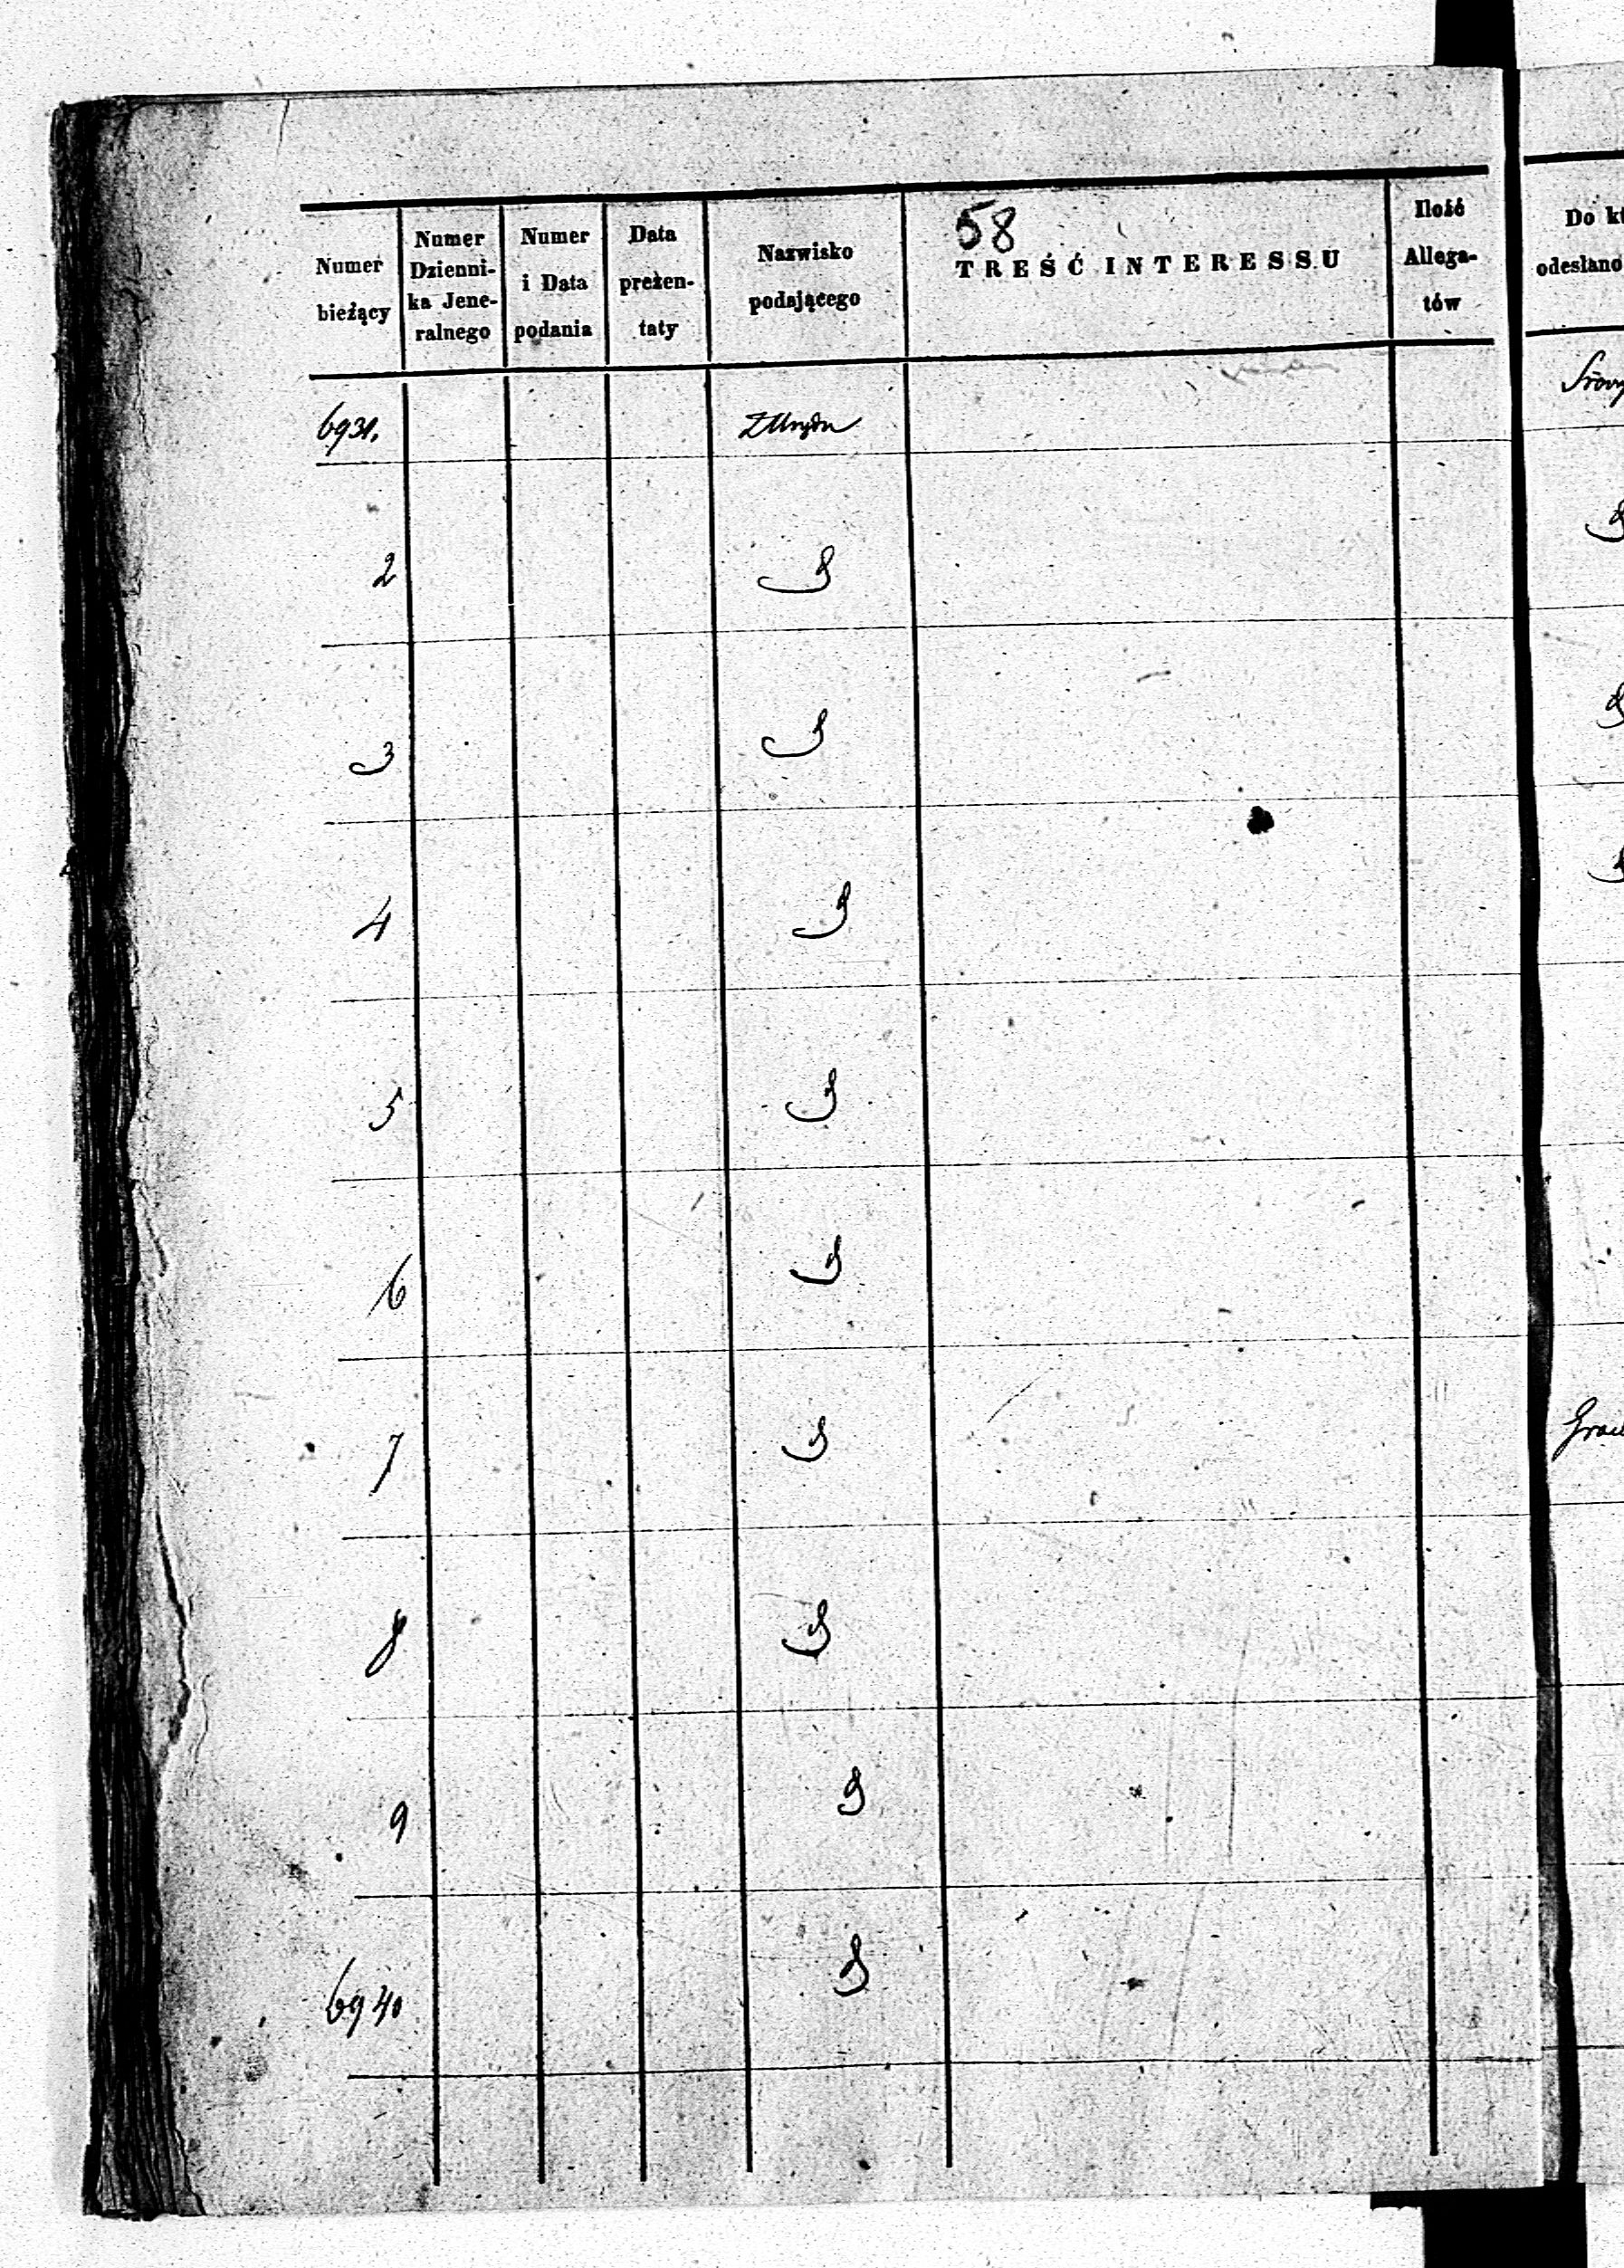 58
Numer bieżący
Numer Dzienni-ka Jene-ralnego
Numer i Data podania
Data prezen-taty
Nazwisko podającego
TREŚĆ INTERESSU
Ilość Allega-tów
Do
odesłano
6931. Z Urzędu
2
3
4
5
6
7
8
9
6940